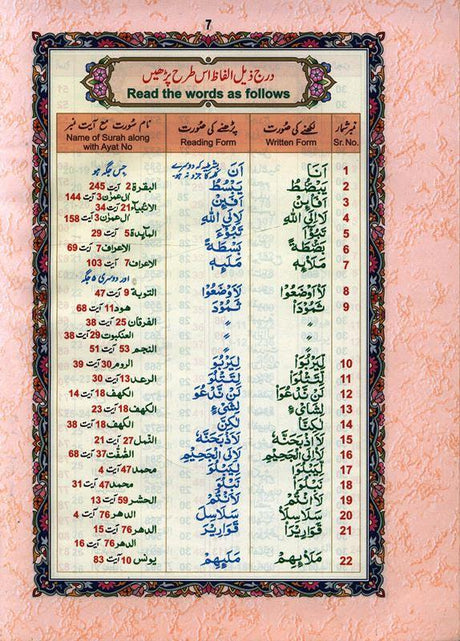 7
درج ذیل الفاظ اس طرح پڑھیں
Read the words as follows
نمبر شمار لکھنے کی صورت پڑھنے کی صورت نام سورت مع آیت نمبر
Sr.No. Written Form Reading Form Name of Surah along with Ayat No
1 اَنَا اَنَ جس جگہ ہو
2 يَبْصُۜطُ يَبْسُطُ البقرة 2 آیت 245
3 اَفَا۟ئِنْ اَفَئِنْ اٰل عمران 3 آیت 144
الانبیاء 21 آیت 34
4 لَا۟اِلَى اللّٰهِ لَاِلَى اللّٰهِ اٰل عمران 3 آیت 158
5 تَبُوْٓءَا۟ تَبُوْٓءَ المآئدة 5 آیت 29
6 بَصْۜطَةً بَسْطَةً الاعراف 7 آیت 69
7 مَلَا۟ئِهٖ مَلَئِهٖ الاعراف 7 آیت 103
اور دوسری ۵ جگہ
8 لَا۟اَوْضَعُوْا لَاَوْضَعُوْا التوبة 9 آیت 47
9 ثَمُوْدَا۟ ثَمُوْدَ هود 11 آیت 68
〃 〃 الفرقان 25 آیت 38
〃 〃 العنكبوت 29 آیت 38
〃 〃 النجم 53 آیت 51
10 لِيَرْبُوَا۟ لِيَرْبُوَ الروم 30 آیت 39
11 لِتَتْلُوَا۟ لِتَتْلُوَ الرعد 13 آیت 30
12 لَنْ نَّدْعُوَا۟ لَنْ نَّدْعُوَ الكهف 18 آیت 14
13 لِشَا۟یْءٍ لِشَیْءٍ الكهف 18 آیت 23
14 لٰكِنَّا۟ لٰكِنَّ الكهف 18 آیت 38
15 لَا۟اَذْبَحَنَّهٗ لَاَذْبَحَنَّهٗ النّمل 27 آیت 21
16 لَا۟اِلَى الْجَحِيْمِ لَاِلَى الْجَحِيْمِ الصّٰفّٰت 37 آیت 68
17 لِيَبْلُوَا۟ لِيَبْلُوَ محمد 47 آیت 4
18 نَبْلُوَا۟ نَبْلُوَ محمد 47 آیت 31
19 لَا۟اَنْتُمْ لَاَنْتُمْ الحشر 59 آیت 13
20 سَلٰسِلَا۟ سَلٰسِلَ الدهر 76 آیت 4
21 قَوَارِيْرَا۟ قَوَارِيْرَ الدهر 76 آیت 15
الدهر 76 آیت 16
22 مَلَا۟ئِهِمْ مَلَئِهِمْ يونس 10 آیت 83